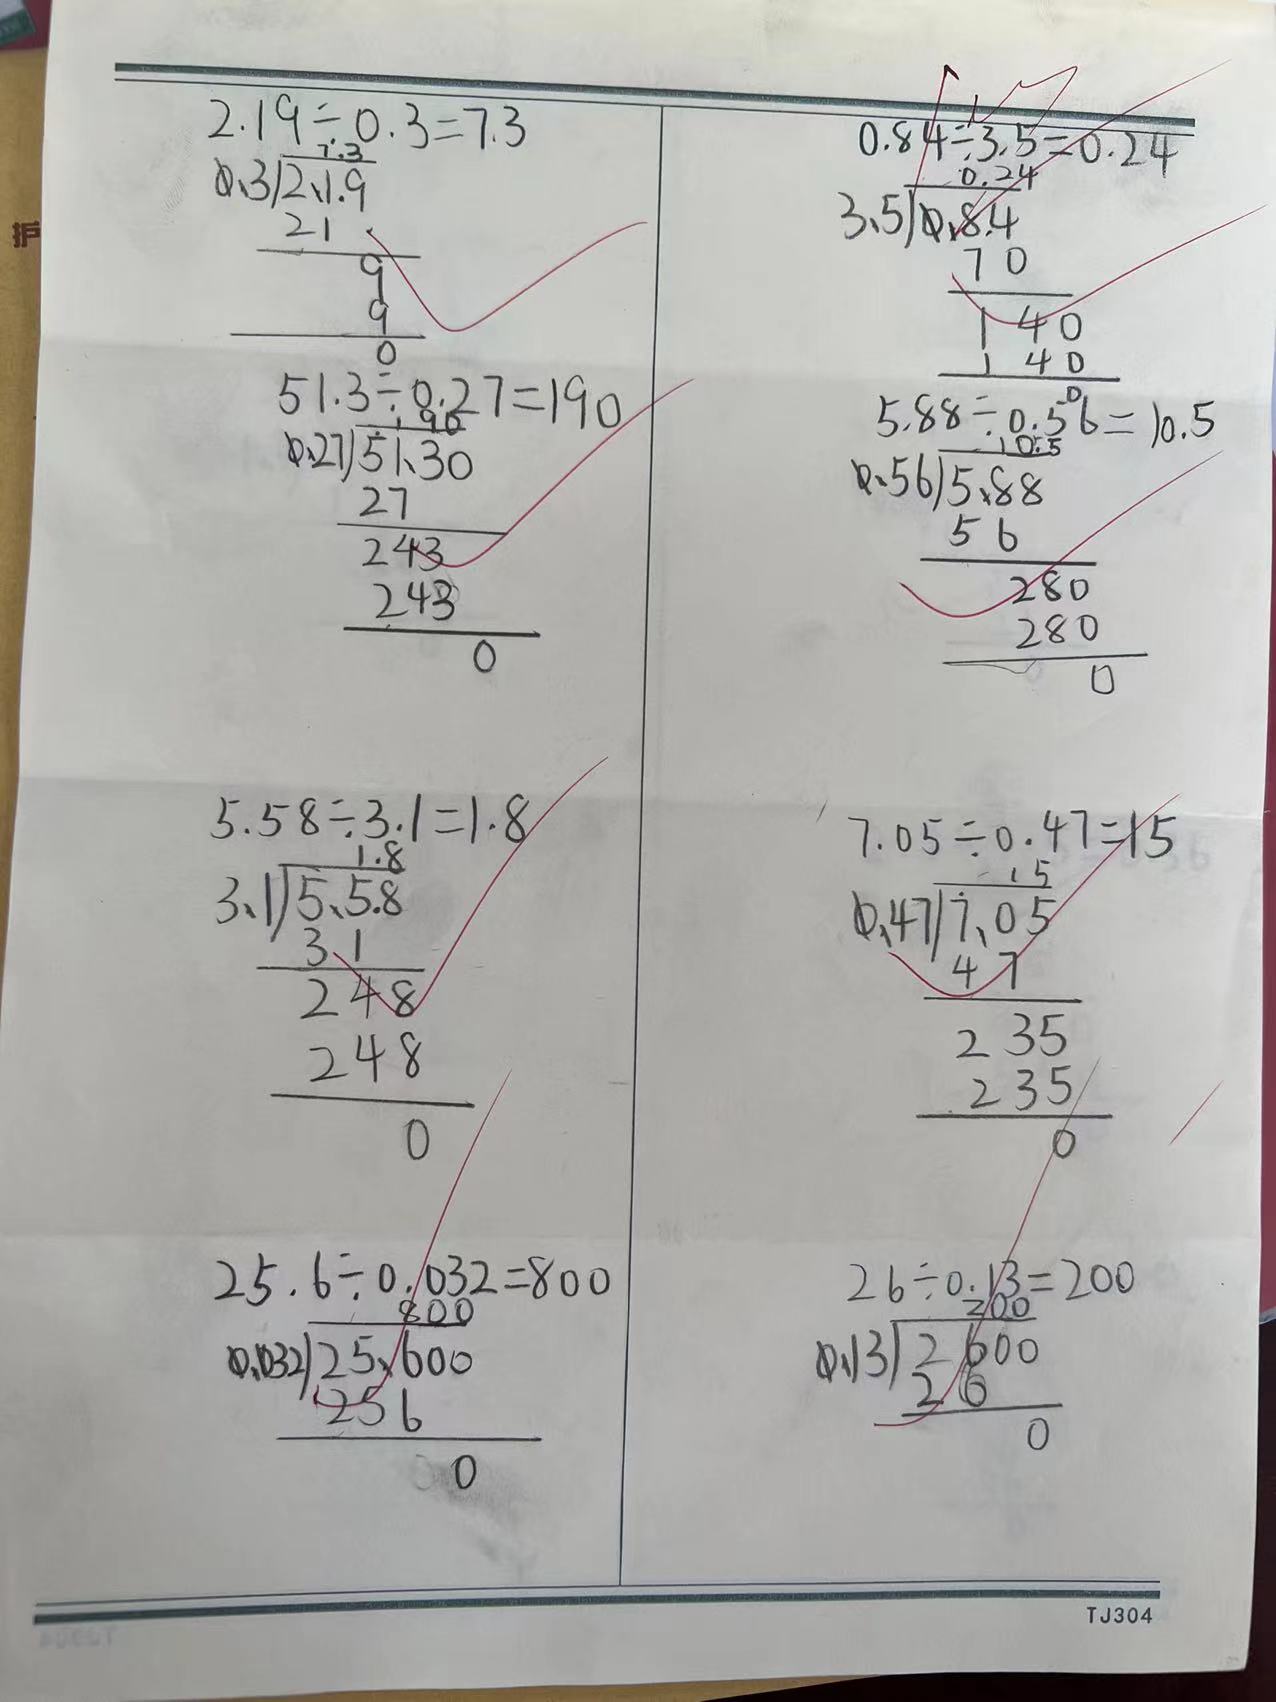 护
2.19÷0.3=7.3
7.3
0.3 2.1.9
21
9
9
0
51.3÷0.27=190
190
0.27 51.30
27
243
243
0
5.58÷3.1=1.8
1.8
3.1 5.5.8
31
248
248
0
25.6÷0.032=800
800
0.032 25.600
256
0
0.84÷3.5=0.24
0.24
3.5 0.8.4
70
140
140
0
5.88÷0.56=10.5
10.5
0.56 5.88
56
280
280
0
7.05÷0.47=15
15
0.47 7.05
47
235
235
0
26÷0.13=200
200
0.13 2600
26
0
TJ304